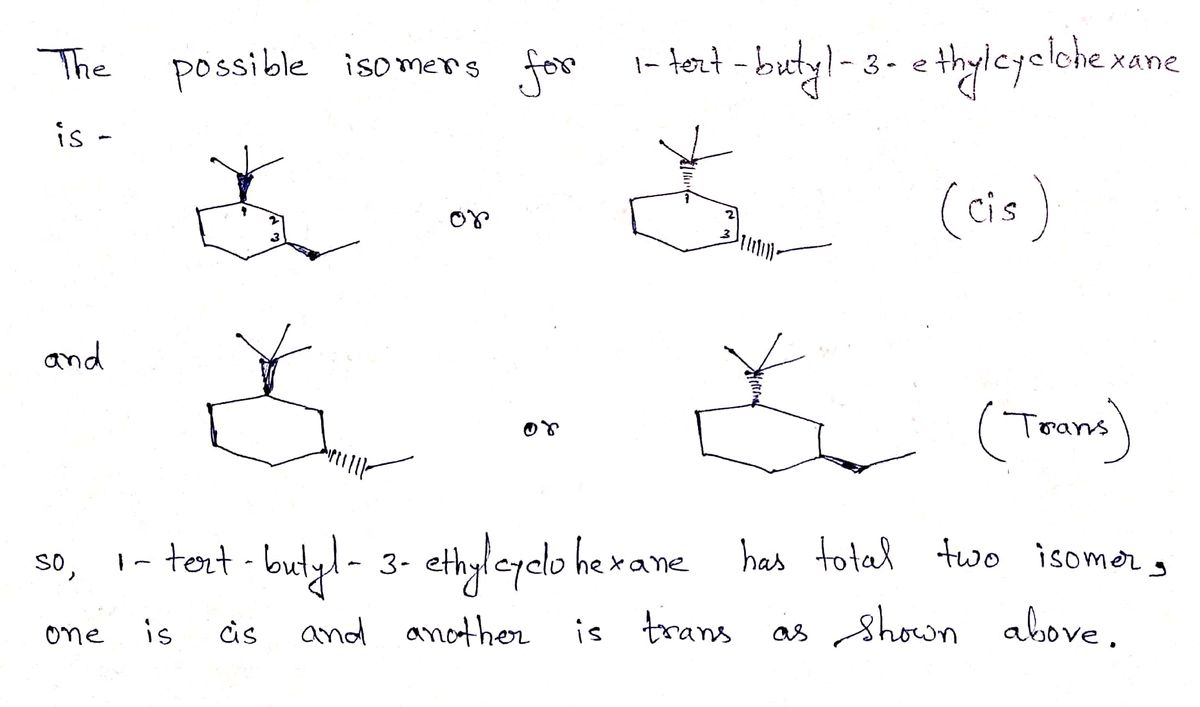 The possible isomers for 1-tert-butyl-3-ethylcyclohexane
is -
1 2 3 or 1 2 3 (cis)
and or (Trans)
so, 1-tert-butyl-3-ethylcyclohexane has total two isomer,
one is cis and another is trans as shown above.